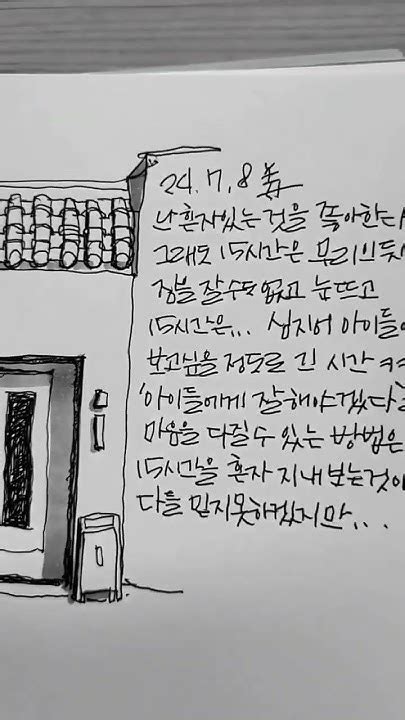 24. 7. 8
난 혼자있는 것을 좋아한다
그래도 15시간은 무리인듯
잠을 잘수도 없고 눈뜨고
15시간은... 심지어 아이들
보고싶을 정도로 긴 시간 ㅋㅋ
'아이들에게 잘해야겠다'
마음을 다질수 있는 방법은
15시간을 혼자 지내보는것
다들 믿지못하겠지만...